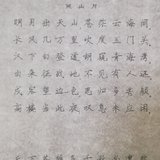 关山月
明月出天山苍茫云海间
长风几万里吹度玉门关
汉下白登道胡窥青海湾
由来征战地不见有人还
戍客望边思归多苦颜
高楼当此夜叹息未应闲